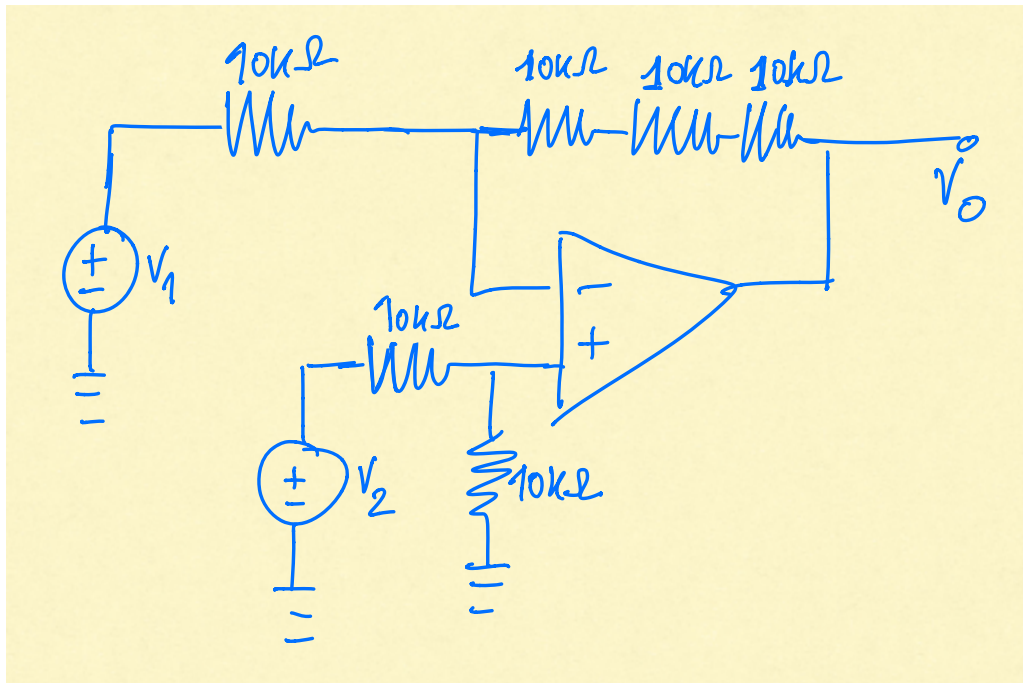 10KΩ
10KΩ 10KΩ 10KΩ
V0
+
-
V1
-
10KΩ
+
+
-
V2
10KΩ